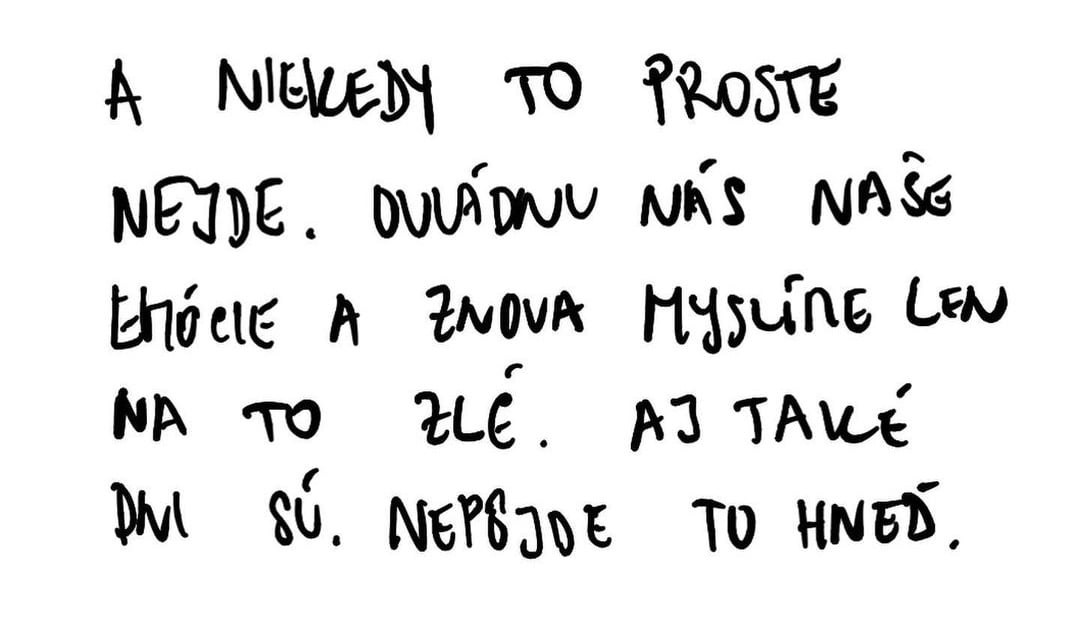 A NIEKEDY TO PROSTE
NEJDE. OVLÁDNU NÁS NAŠE
EMÓCIE A ZNOVA MYSLÍME LEN
NA TO ZLÉ. AJ TAKÉ
DNI SÚ. NEPÔJDE TO HNEĎ.